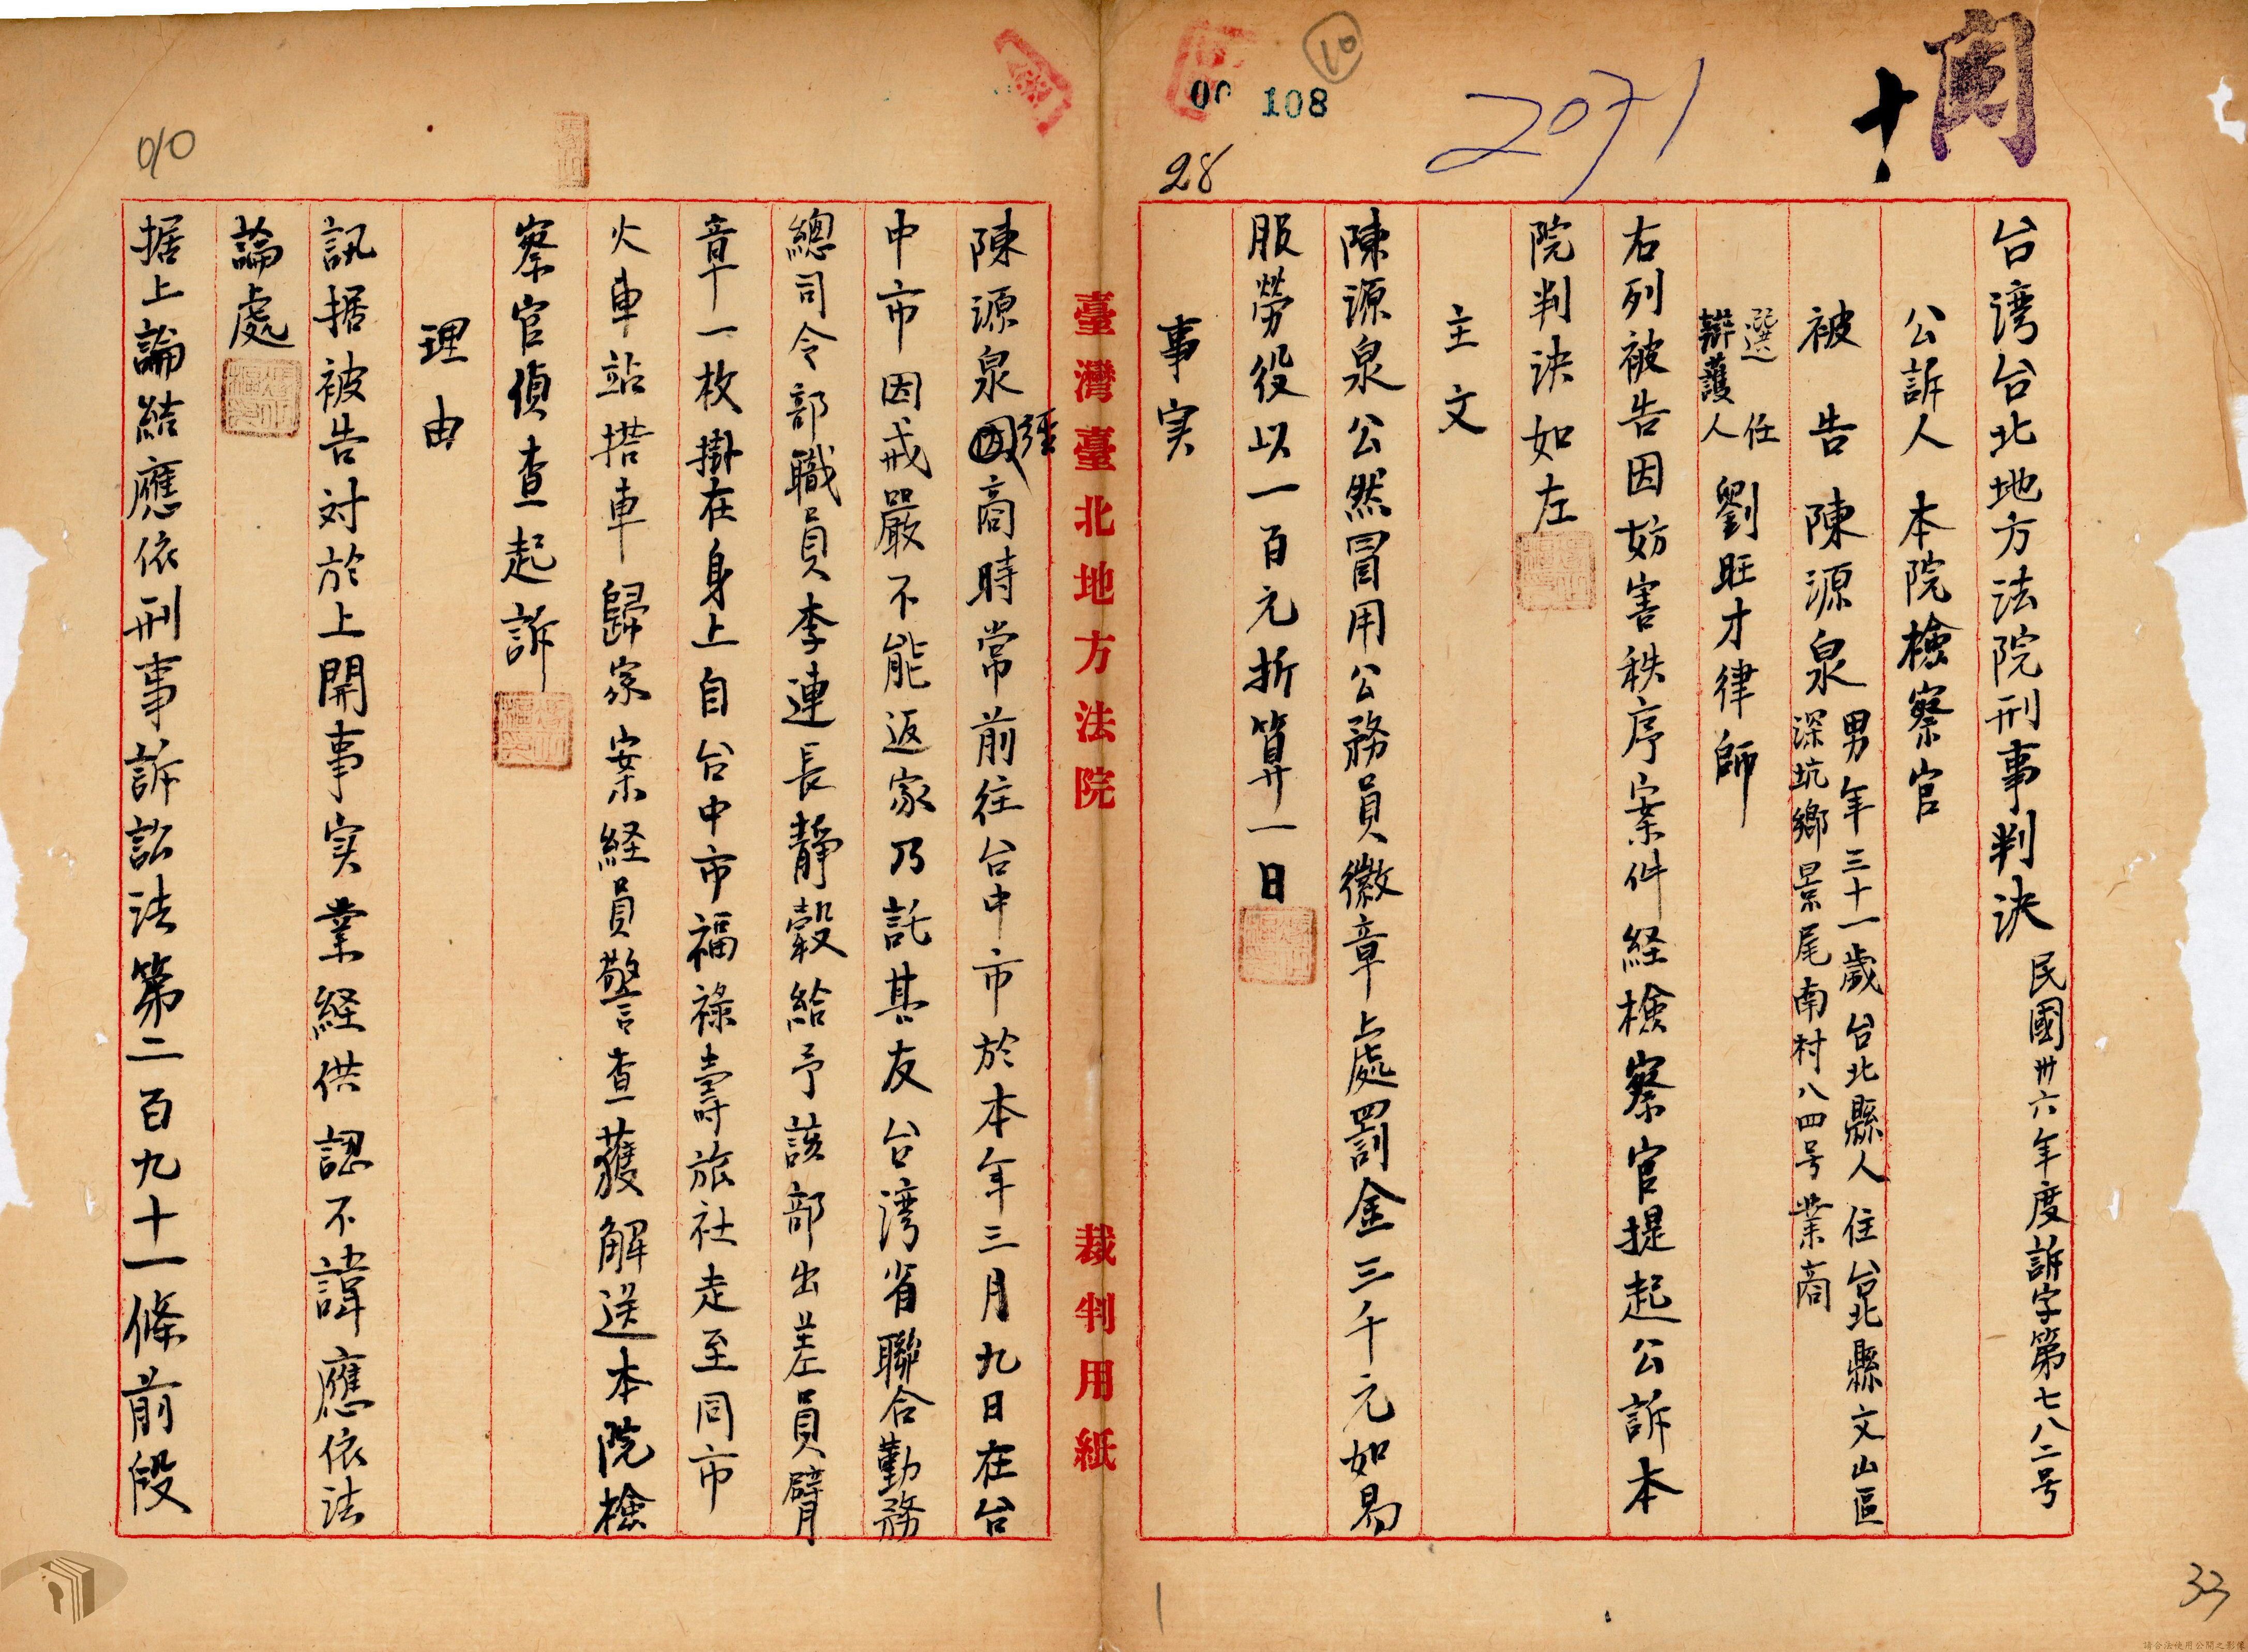 10
00 108
2071
28
台湾台北地方法院刑事判決 民國卅六年度訴字第七八二号
公訴人 本院檢察官
被告 陳源泉 男年三十一歲台北縣人住台北縣文山區
深坑鄉景尾南村八四号業商
選任
辯護人 劉旺才律師
右列被告因妨害秩序案件経檢察官提起公訴本
院判決如左
主文
陳源泉公然冒用公務員徽章處罰金三千元如易
服勞役以一百元折算一日
事実
臺灣臺北地方法院 裁判用紙
陳源泉經商時常前往台中市於本年三月九日在台
中市因戒嚴不能返家乃託其友台湾省聯合勤務
總司令部職員李連長靜毅給予該部出差員臂
章一枚掛在身上自台中市福祿壽旅社走至同市
火車站搭車歸家案経員警查獲解送本院檢
察官偵查起訴
理由
訊据被告対於上開事実業経供認不諱應依法
論處
据上論結應依刑事訴訟法第二百九十一條前段
010
33
請合法使用公開之影像